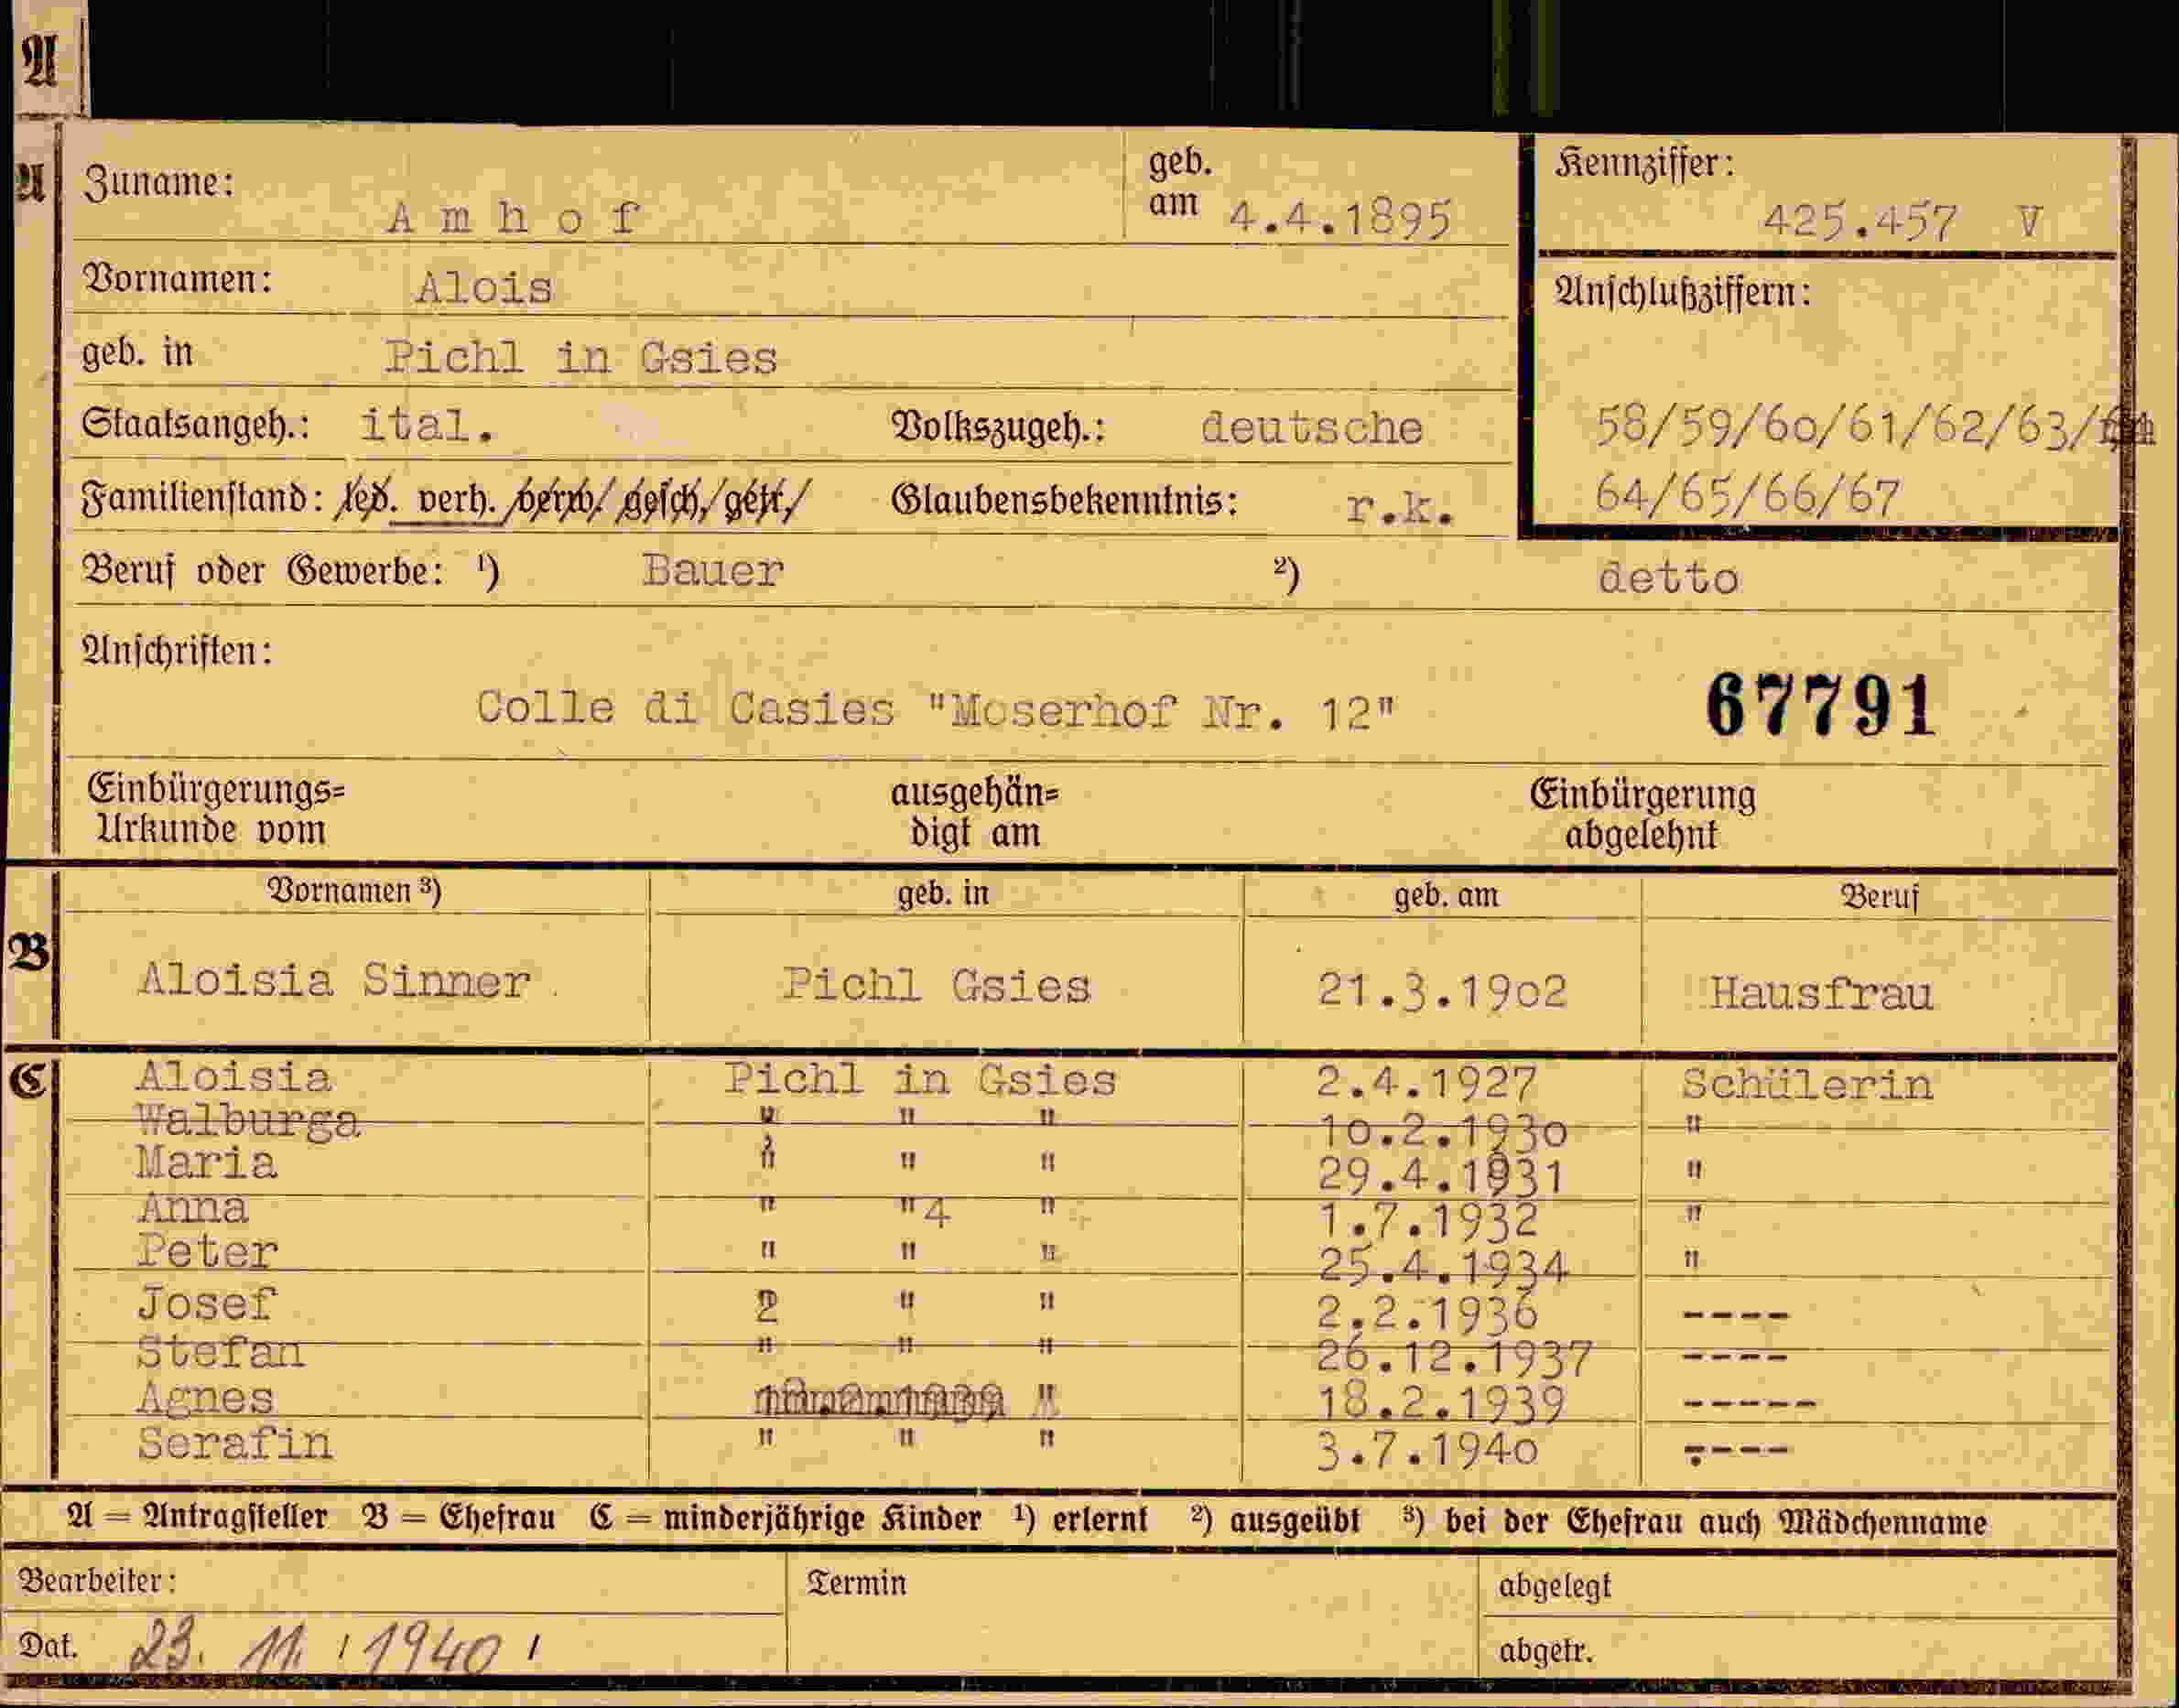 A
A
Zuname: Amhof geb. am 4.4.1895
Kennziffer: 425.457 V
Vornamen: Alois
Anschlußziffern:
geb. in Pichl in Gsies
Staatsangeh.: ital. Volkszugeh.: deutsche
58/59/60/61/62/63/
Familienstand: led. verh. verw. gesch. getr. Glaubensbekenntnis: r.k.
64/65/66/67
Beruf oder Gewerbe: ¹) Bauer ²) detto
Anschriften:
Colle di Casies "Moserhof Nr. 12" 67791
Einbürgerungs= ausgehän= Einbürgerung
Urkunde vom digt am abgelehnt
Vornamen ³) geb. in geb. am Beruf
B
Aloisia Sinner Pichl Gsies 21.3.1902 Hausfrau
C Aloisia Pichl in Gsies 2.4.1927 Schülerin
Walburga " " " 10.2.1930 "
Maria " " " 29.4.1931 "
Anna " "4 " 1.7.1932 "
Peter " " " 25.4.1934 "
Josef 2 " " 2.2.1936 ----
Stefan " " " 26.12.1937 ----
Agnes " 18.2.1939 -----
Serafin " " " 3.7.1940 ----
A = Antragsteller B = Ehefrau C = minderjährige Kinder ¹) erlernt ²) ausgeübt ³) bei der Ehefrau auch Mädchenname
Bearbeiter: Termin abgelegt
Dat. 23. 11. 1940 abgetr.